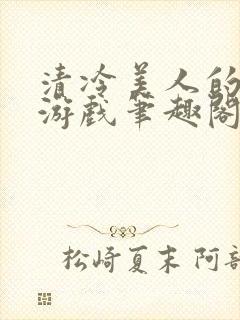 清冷美人的
游戏笔趣阁
松崎夏末 阿部